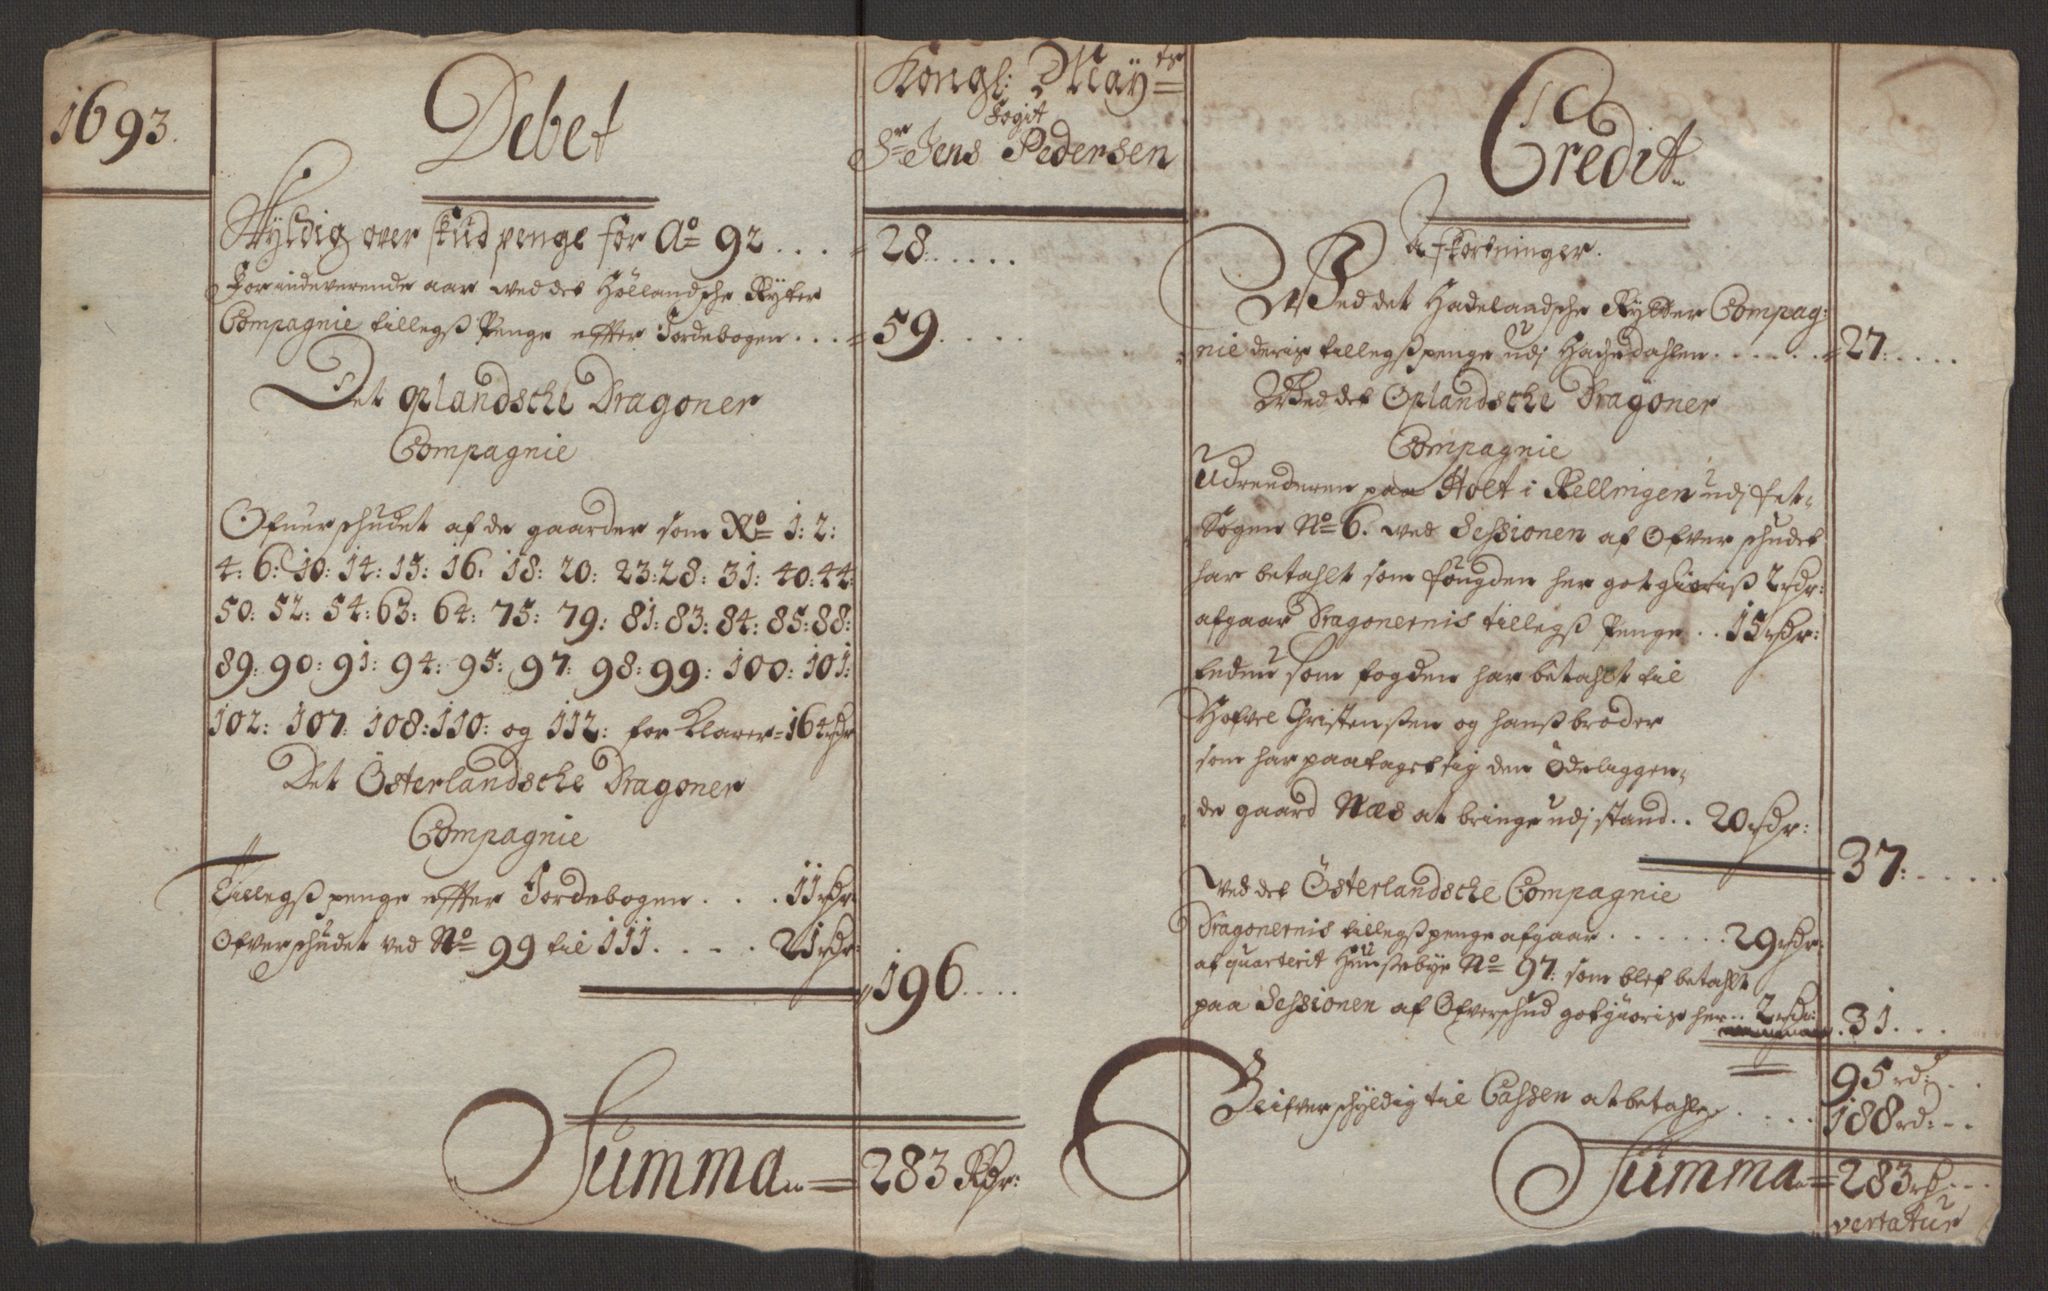 1693.
Debet
Kongl: May^ts
Fogit
S^r Jens Pedersen
Skyldig over skud penge for A^o 92 .... 28:
For indeverende aar wed det Höllandsche Rytter
Compagnie tillegß Penge effter Jordebogen ... 59.
Det oplandsche Dragoner
Compagnie
Ofuerschudet af de gaarder som N^o 1: 2:
4: 6: 10: 14: 15: 16: 18: 20: 23: 28: 31: 40: 44:
50: 52: 54: 63: 64: 75: 79: 81: 83: 84: 85: 88:
89: 90: 91: 94: 95: 97: 98: 99: 100: 101:
102: 107: 108: 110: og 112: for Klarer = 164 rdr
Det Österlandsche Dragoner
Compagnie
Tillegß penge effter Jordebogen .... 11 rdr:
Ofverschudet ved N^o 99 til 111 ..... 21 rdr:
196 ....
Summa = 283 Rdr:
Credit
Afkortninger.
Wed det Hadelandsche Rytter Compag:
nie deris tillegß penge udj Hachedahlen ...... 27:
Wed det Oplandsche Dragoner
Compagnie
Udreederen paa Holt i Rellingen udj Fet-
Sogen N^o 6. ved Sessionen af Ofverschudet
har betahlt som fougden her gotgiöriß 2 rdr:
afgaar Dragonernis tillegß Penge .. 15 rdr:
som fogden har betahlt til
Hofvel Christensßen og hanß broder
som har paataget sig den Ödelaggen,
de gaard Næs at bringe udj stand .. 20 rdr:
37:
ved det Österlandsche Compagnie
Dragonernis tillegß penge afgaar ...... 29 rdr:
af quarterit Huusebye N^o 97: som blef betahlt
paa Sessionen af Ofverschud gotgiöris her .. 2 rdr:
31...
95 rd:
Blifver schyldig til Cassen at betahle .... 188 rd:
Summa = 283 rd
vertatur